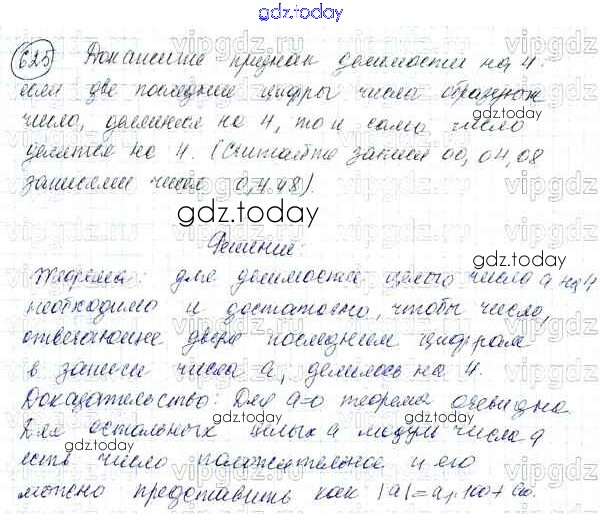 gdz.today
625 Докажите признак делимости на 4:
если две последние цифры числа образуют
число, делящееся на 4, то и само число
делится на 4. (Считайте записи 00, 04, 08
записями чисел 0, 4, 8).
gdz.today
gdz.today
Решение:
Теорема: для делимости целого числа a на 4
необходимо и достаточно, чтобы число,
отвечающее двум последним цифрам
в записи числа a, делилось на 4.
Доказательство: Для a=0 теорема очевидна
gdz.today
gdz.today
Для остальных целых a модуль числа a
есть число положительное и его
можно представить как |a|=a₁·100+a₀.
gdz.today